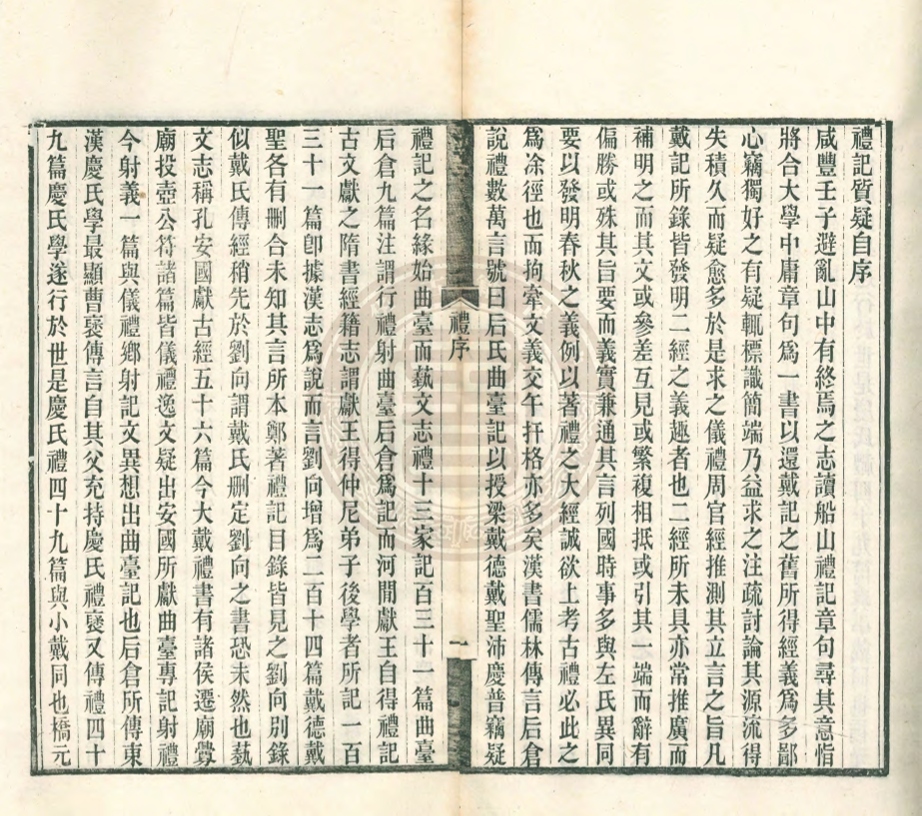 禮記質疑自序
咸豐壬子避亂山中有終焉之志讀船山禮記章句尋其意恉
將合大學中庸章句爲一書以還戴記之舊所得經義爲多鄙
心竊獨好之有疑輒標識簡端乃益求之注疏討論其源流得
失積久而疑愈多於是求之儀禮周官經推測其立言之旨凡
戴記所錄皆發明二經之義趣者也二經所未具亦常推廣而
補明之而其文或參差互見或繁複相抵或引其一端而辭有
偏勝或殊其旨要而義實兼通其言列國時事多與左氏異同
要以發明春秋之義例以著禮之大經誠欲上考古禮必此之
爲凃徑也而拘牽文義交午扞格亦多矣漢書儒林傳言后倉
說禮數萬言號曰后氏曲臺記以授梁戴德戴聖沛慶普竊疑
禮序
一
禮記之名緣始曲臺而蓺文志禮十三家記百三十一篇曲臺
后倉九篇注謂行禮射曲臺后倉爲記而河間獻王自得禮記
古文獻之隋書經籍志謂獻王得仲尼弟子後學者所記一百
三十一篇卽據漢志爲說而言劉向增爲二百十四篇戴德戴
聖各有刪合未知其言所本鄭著禮記目錄皆見之劉向別錄
似戴氏傳經稍先於劉向謂戴氏刪定劉向之書恐未然也蓺
文志稱孔安國獻古經五十六篇今大戴禮書有諸侯遷廟釁
廟投壺公符諸篇皆儀禮逸文疑出安國所獻曲臺專記射禮
今射義一篇與儀禮鄉射記文異想出曲臺記也后倉所傳東
漢慶氏學最顯曹褒傳言自其父充持慶氏禮褒又傳禮四十
九篇慶氏學遂行於世是慶氏禮四十九篇與小戴同也橋元